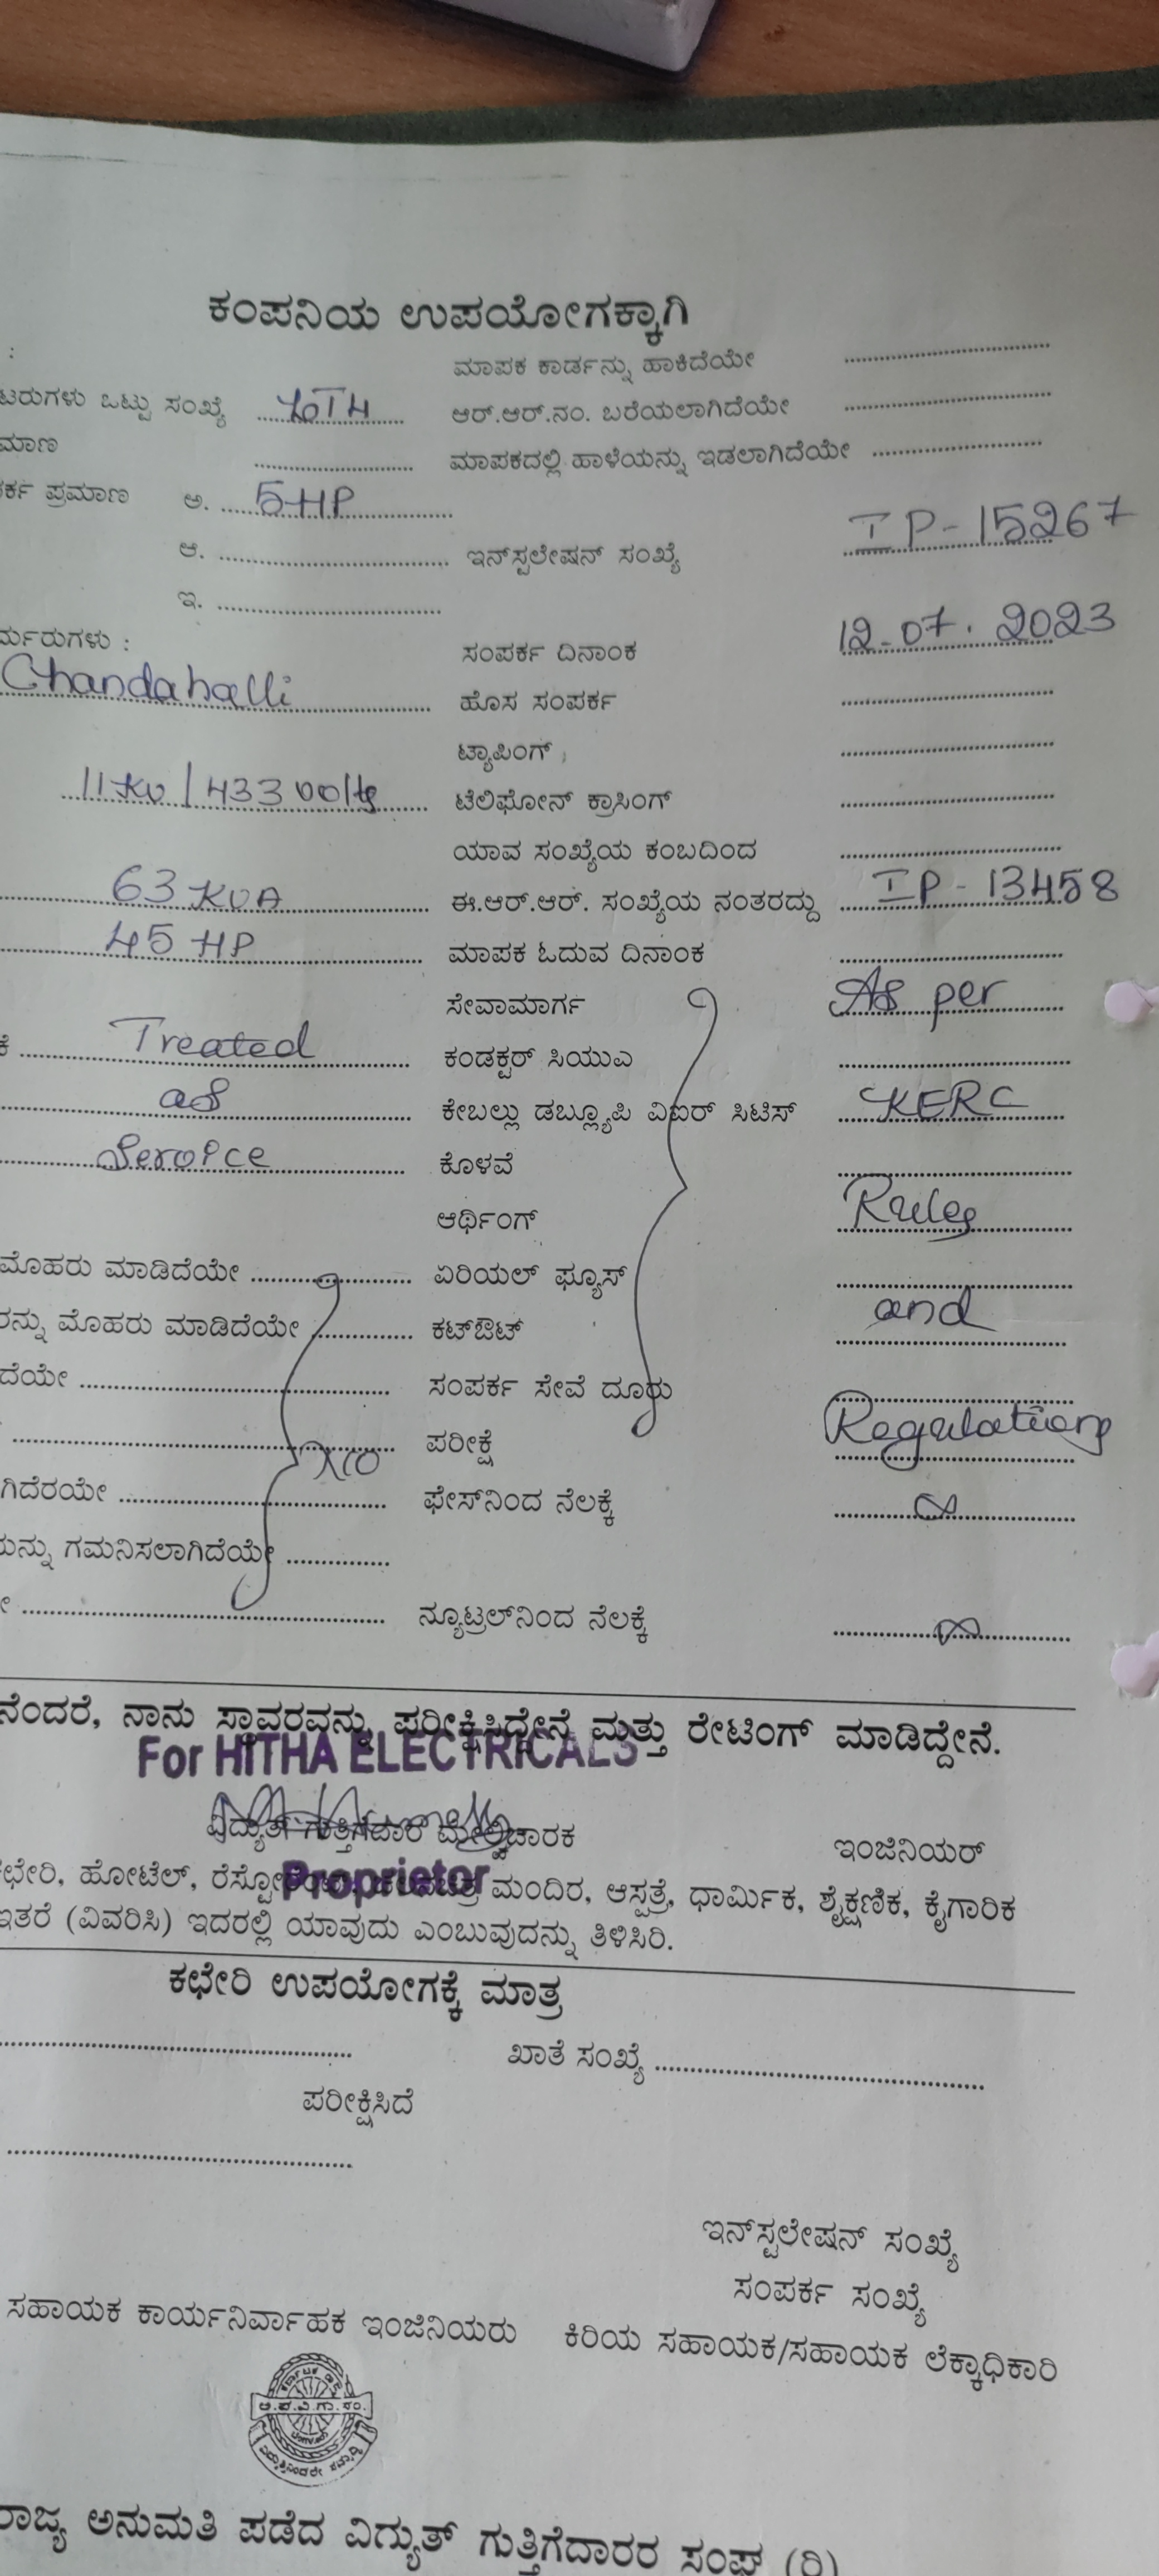 ಕಂಪನಿಯ ಉಪಯೋಗಕ್ಕಾಗಿ
: ಮಾಪಕ ಕಾರ್ಡನ್ನು ಹಾಕಿದೆಯೇ
ಟರುಗಳು ಒಟ್ಟು ಸಂಖ್ಯೆ ಆರ್.ಆರ್.ನಂ. ಬರೆಯಲಾಗಿದೆಯೇ
ಮಾಣ ಮಾಪಕದಲ್ಲಿ ಹಾಳೆಯನ್ನು ಇಡಲಾಗಿದೆಯೇ
ರ್ಕ ಪ್ರಮಾಣ ಅ. 5 HP
ಆ. ಇನ್‌ಸ್ಟಲೇಷನ್ ಸಂಖ್ಯೆ IP-15267
ಇ.
ರ್ಮರುಗಳು : ಸಂಪರ್ಕ ದಿನಾಂಕ 12.07.2023
Chandahalli ಹೊಸ ಸಂಪರ್ಕ
ಟ್ಯಾಪಿಂಗ್
11 KV / 433 Volts ಟೆಲಿಫೋನ್ ಕ್ರಾಸಿಂಗ್
ಯಾವ ಸಂಖ್ಯೆಯ ಕಂಬದಿಂದ
63 KVA ಈ.ಆರ್.ಆರ್. ಸಂಖ್ಯೆಯ ನಂತರದ್ದು IP-13458
45 HP ಮಾಪಕ ಓದುವ ದಿನಾಂಕ
ಸೇವಾಮಾರ್ಗ As per
ಕೆ Treated ಕಂಡಕ್ಟರ್ ಸಿಯುಎ
as ಕೇಬಲ್ಲು ಡಬ್ಲ್ಯೂಪಿ ವಿಐರ್ ಸಿಟಿಸ್ KERC
Service ಕೊಳವೆ
ಆರ್ಥಿಂಗ್ Rules
ಮೊಹರು ಮಾಡಿದೆಯೇ ಏರಿಯಲ್ ಫ್ಯೂಸ್
ರನ್ನು ಮೊಹರು ಮಾಡಿದೆಯೇ ಕಟ್‌ಔಟ್ and
ದೆಯೇ ಸಂಪರ್ಕ ಸೇವೆ ದೂರು
ಪರೀಕ್ಷೆ Regulations
ಗಿದೆರಯೇ ಫೇಸ್‌ನಿಂದ ನೆಲಕ್ಕೆ ∞
ಯನ್ನು ಗಮನಿಸಲಾಗಿದೆಯೇ
ನ್ಯೂಟ್ರಲ್‌ನಿಂದ ನೆಲಕ್ಕೆ ∞
ನೆಂದರೆ, ನಾನು ಸ್ಥಾವರವನ್ನು ಪರೀಕ್ಷಿಸಿದ್ದೇನೆ ಮತ್ತು ರೇಟಿಂಗ್ ಮಾಡಿದ್ದೇನೆ.
For HITHA ELECTRICALS
ವಿದ್ಯುತ್ ಗುತ್ತಿಗೆದಾರ ಮೇಲ್ವಿಚಾರಕ ಇಂಜಿನಿಯರ್
Proprietor
ಛೇರಿ, ಹೋಟೆಲ್, ಮಂದಿರ, ಆಸ್ಪತ್ರೆ, ಧಾರ್ಮಿಕ, ಶೈಕ್ಷಣಿಕ, ಕೈಗಾರಿಕ
ಇತರೆ (ವಿವರಿಸಿ) ಇದರಲ್ಲಿ ಯಾವುದು ಎಂಬುವುದನ್ನು ತಿಳಿಸಿರಿ.
ಕಛೇರಿ ಉಪಯೋಗಕ್ಕೆ ಮಾತ್ರ
ಖಾತೆ ಸಂಖ್ಯೆ
ಪರೀಕ್ಷಿಸಿದೆ
ಇನ್‌ಸ್ಟಲೇಷನ್ ಸಂಖ್ಯೆ
ಸಂಪರ್ಕ ಸಂಖ್ಯೆ
ಸಹಾಯಕ ಕಾರ್ಯನಿರ್ವಾಹಕ ಇಂಜಿನಿಯರು ಕಿರಿಯ ಸಹಾಯಕ/ಸಹಾಯಕ ಲೆಕ್ಕಾಧಿಕಾರಿ
ರಾಜ್ಯ ಅನುಮತಿ ಪಡೆದ ವಿದ್ಯುತ್ ಗುತ್ತಿಗೆದಾರರ ಸಂಘ (ರಿ)